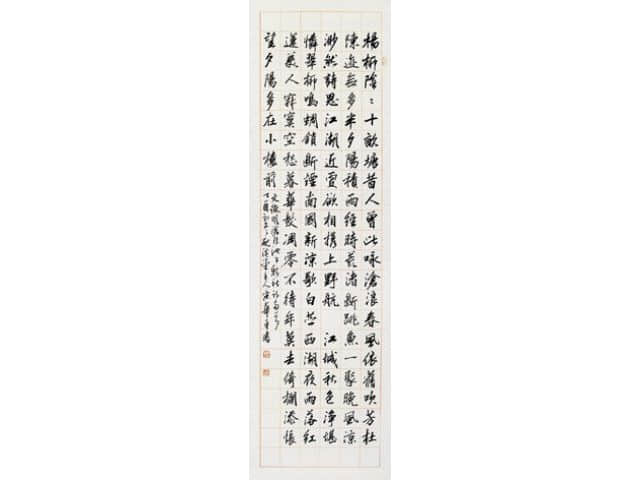 楊柳陰〻十畝塘昔人曾此咏滄浪春風依舊吹芳杜
陳迹無多半夕陽積雨經時荒渚斷跳魚一聚晚風涼
渺然詩思江湖近更欲相携上野航 江城秋色淨堪
憐翠柳鳴蜩鎖斷煙南國新涼歌白苎西湖夜雨落紅
蓮美人寂寞空愁暮華髮凋零不待年莫去倚欄添悵
望夕陽多在小樓前
文徵明滄浪池上新秋
丁酉